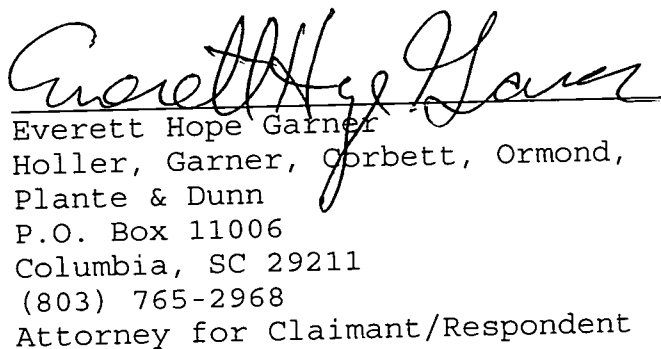 Everett Hope Garner
Everett Hope Garner
Holler, Garner, Corbett, Ormond,
Plante & Dunn
P.O. Box 11006
Columbia, SC 29211
(803) 765-2968
Attorney for Claimant/Respondent